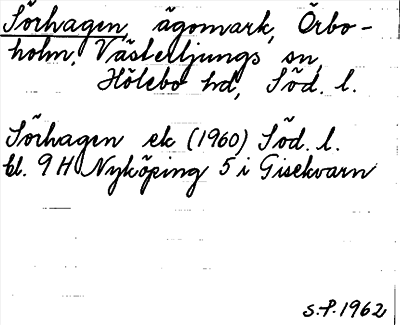 Sörhagen, ägomark, Örbo-
holm, Västerljungs sn,
Hölebo hd, Söd. l.
Sörhagen ek (1960) Söd. l.
bl. 9 H Nyköping 5 i Gisekvarn
S.P. 1962